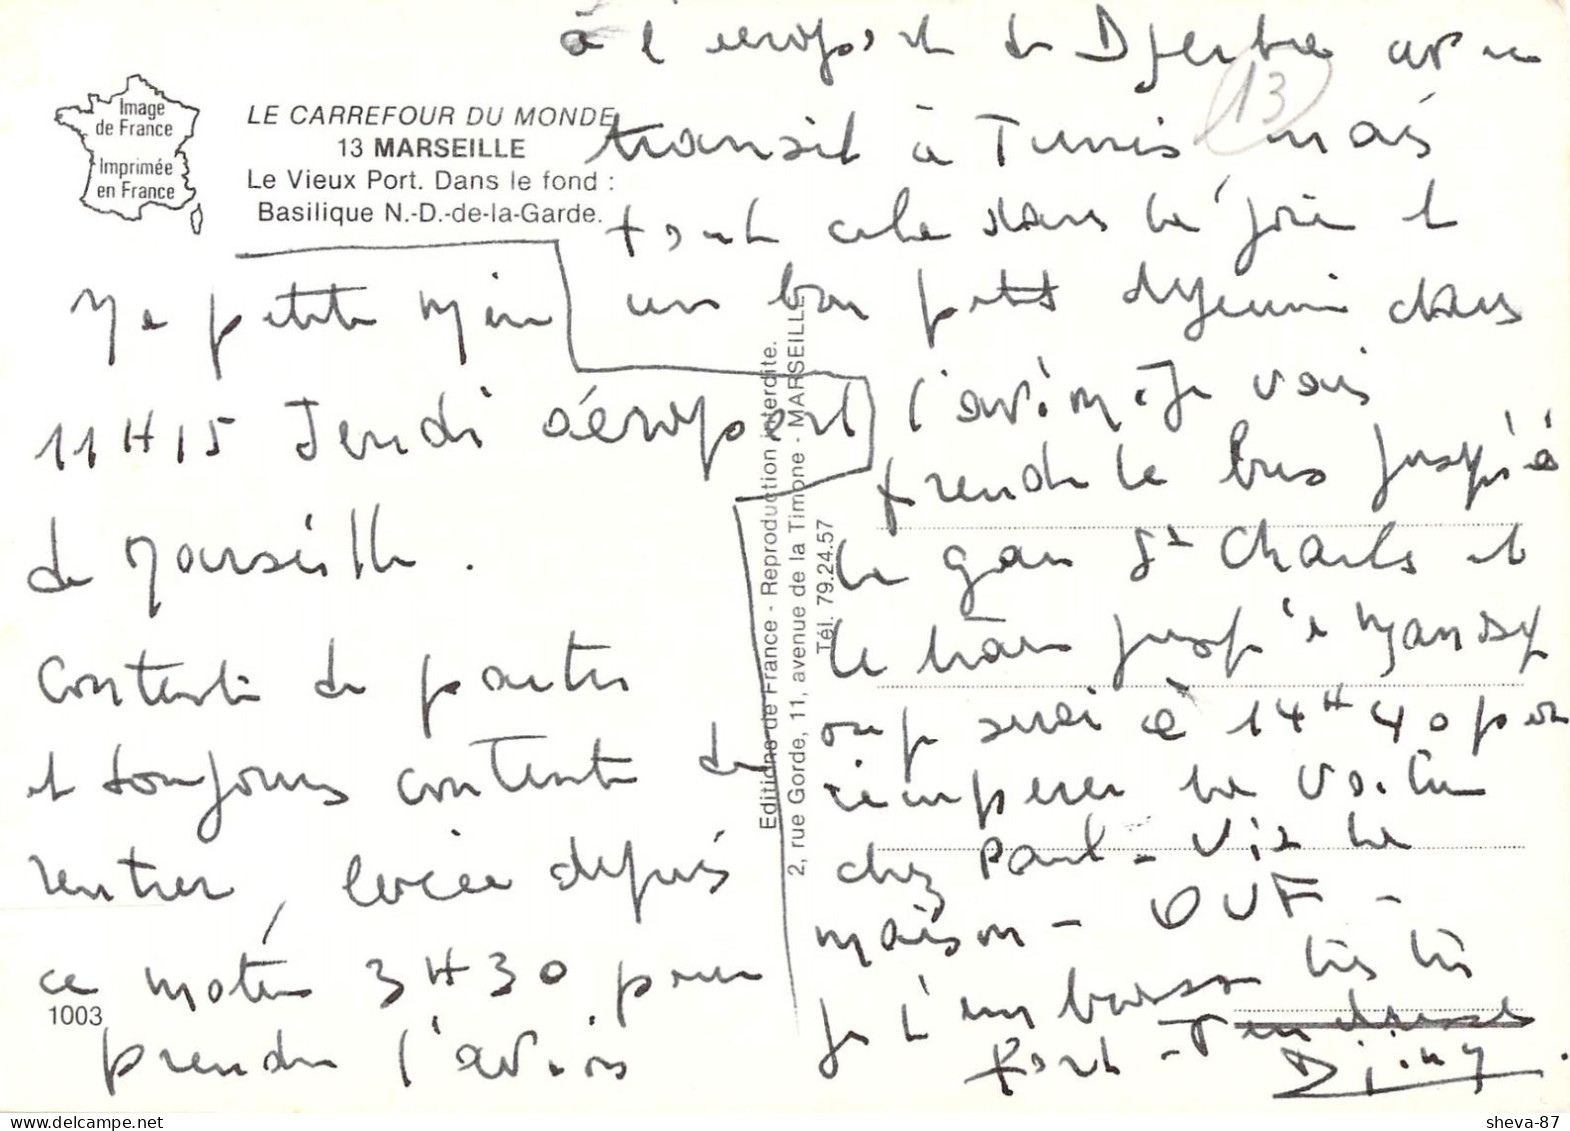 Image
de France
Imprimée
en France
LE CARREFOUR DU MONDE
13 MARSEILLE
Le Vieux Port. Dans le fond :
Basilique N.-D.-de-la-Garde.
Ma petite Mimi
11H15 Jeudi aéroport
de Marseille.
Contente de partir
et toujours contente de
rentrer, levée depuis
ce matin 3H30 pour
prendre l'avion
1003
à l'aéroport de Djerba avec
transit à Tunis mais
tout cela dans la joie et
un bon petit déjeuner dans
l'avion. Je vais
prendre le bus jusqu'à
la gare St Charles et
le train jusqu'à
où je serai à 14H40 pour
récupérer la voiture
chez Paul - Vive la
maison - OUF -
Je t'embrasse très très
fort - Tendresse
13
Editions de France - Reproduction interdite.
2, rue Gorde, 11, avenue de la Timone - MARSEILLE
Tél. 79.24.57
sheva-87